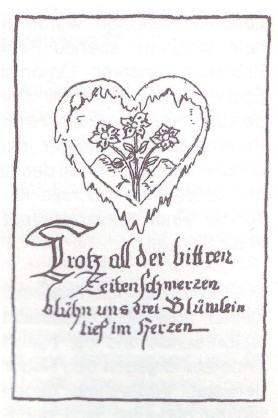 Trotz all der bittren
Zeitenschmerzen
blühn uns drei Blümlein
tief im Herzen